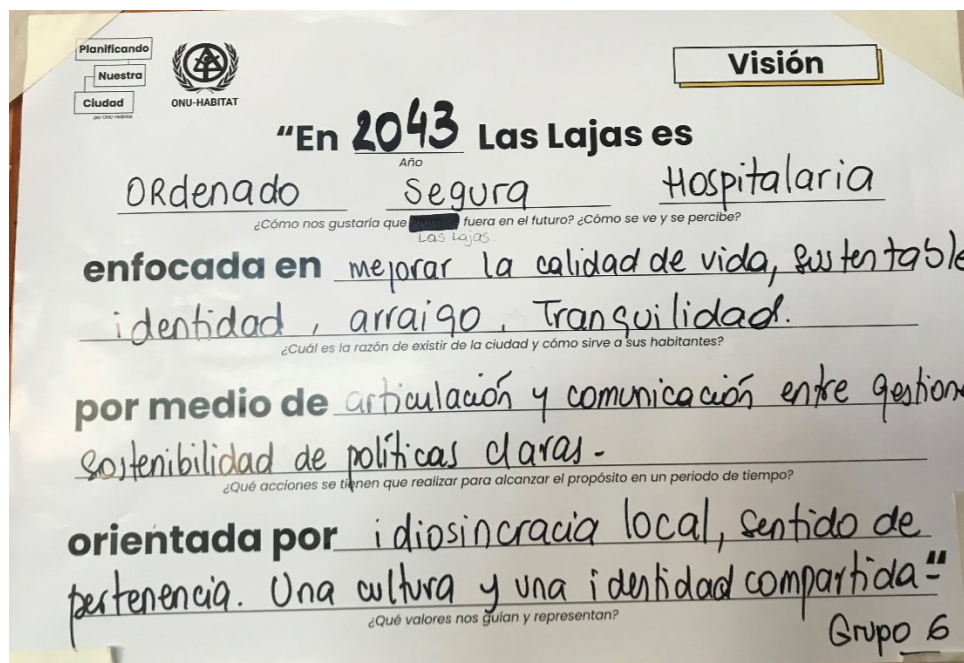 Planificando
Nuestra
Ciudad
por ONU-Habitat
ONU-HABITAT
Visión
“En 2043 Las Lajas es
Año
ORdenado Segura Hospitalaria
¿Cómo nos gustaría que fuera en el futuro? ¿Cómo se ve y se percibe?
Las Lajas
enfocada en mejorar la calidad de vida, sustentable
identidad, arraigo, Tranquilidad.
¿Cuál es la razón de existir de la ciudad y cómo sirve a sus habitantes?
por medio de articulación y comunicación entre gestion
sostenibilidad de políticas claras-
¿Qué acciones se tienen que realizar para alcanzar el propósito en un periodo de tiempo?
orientada por idiosincracia local, sentido de
pertenencia. Una cultura y una identidad compartida-"
¿Qué valores nos guían y representan?
Grupo 6